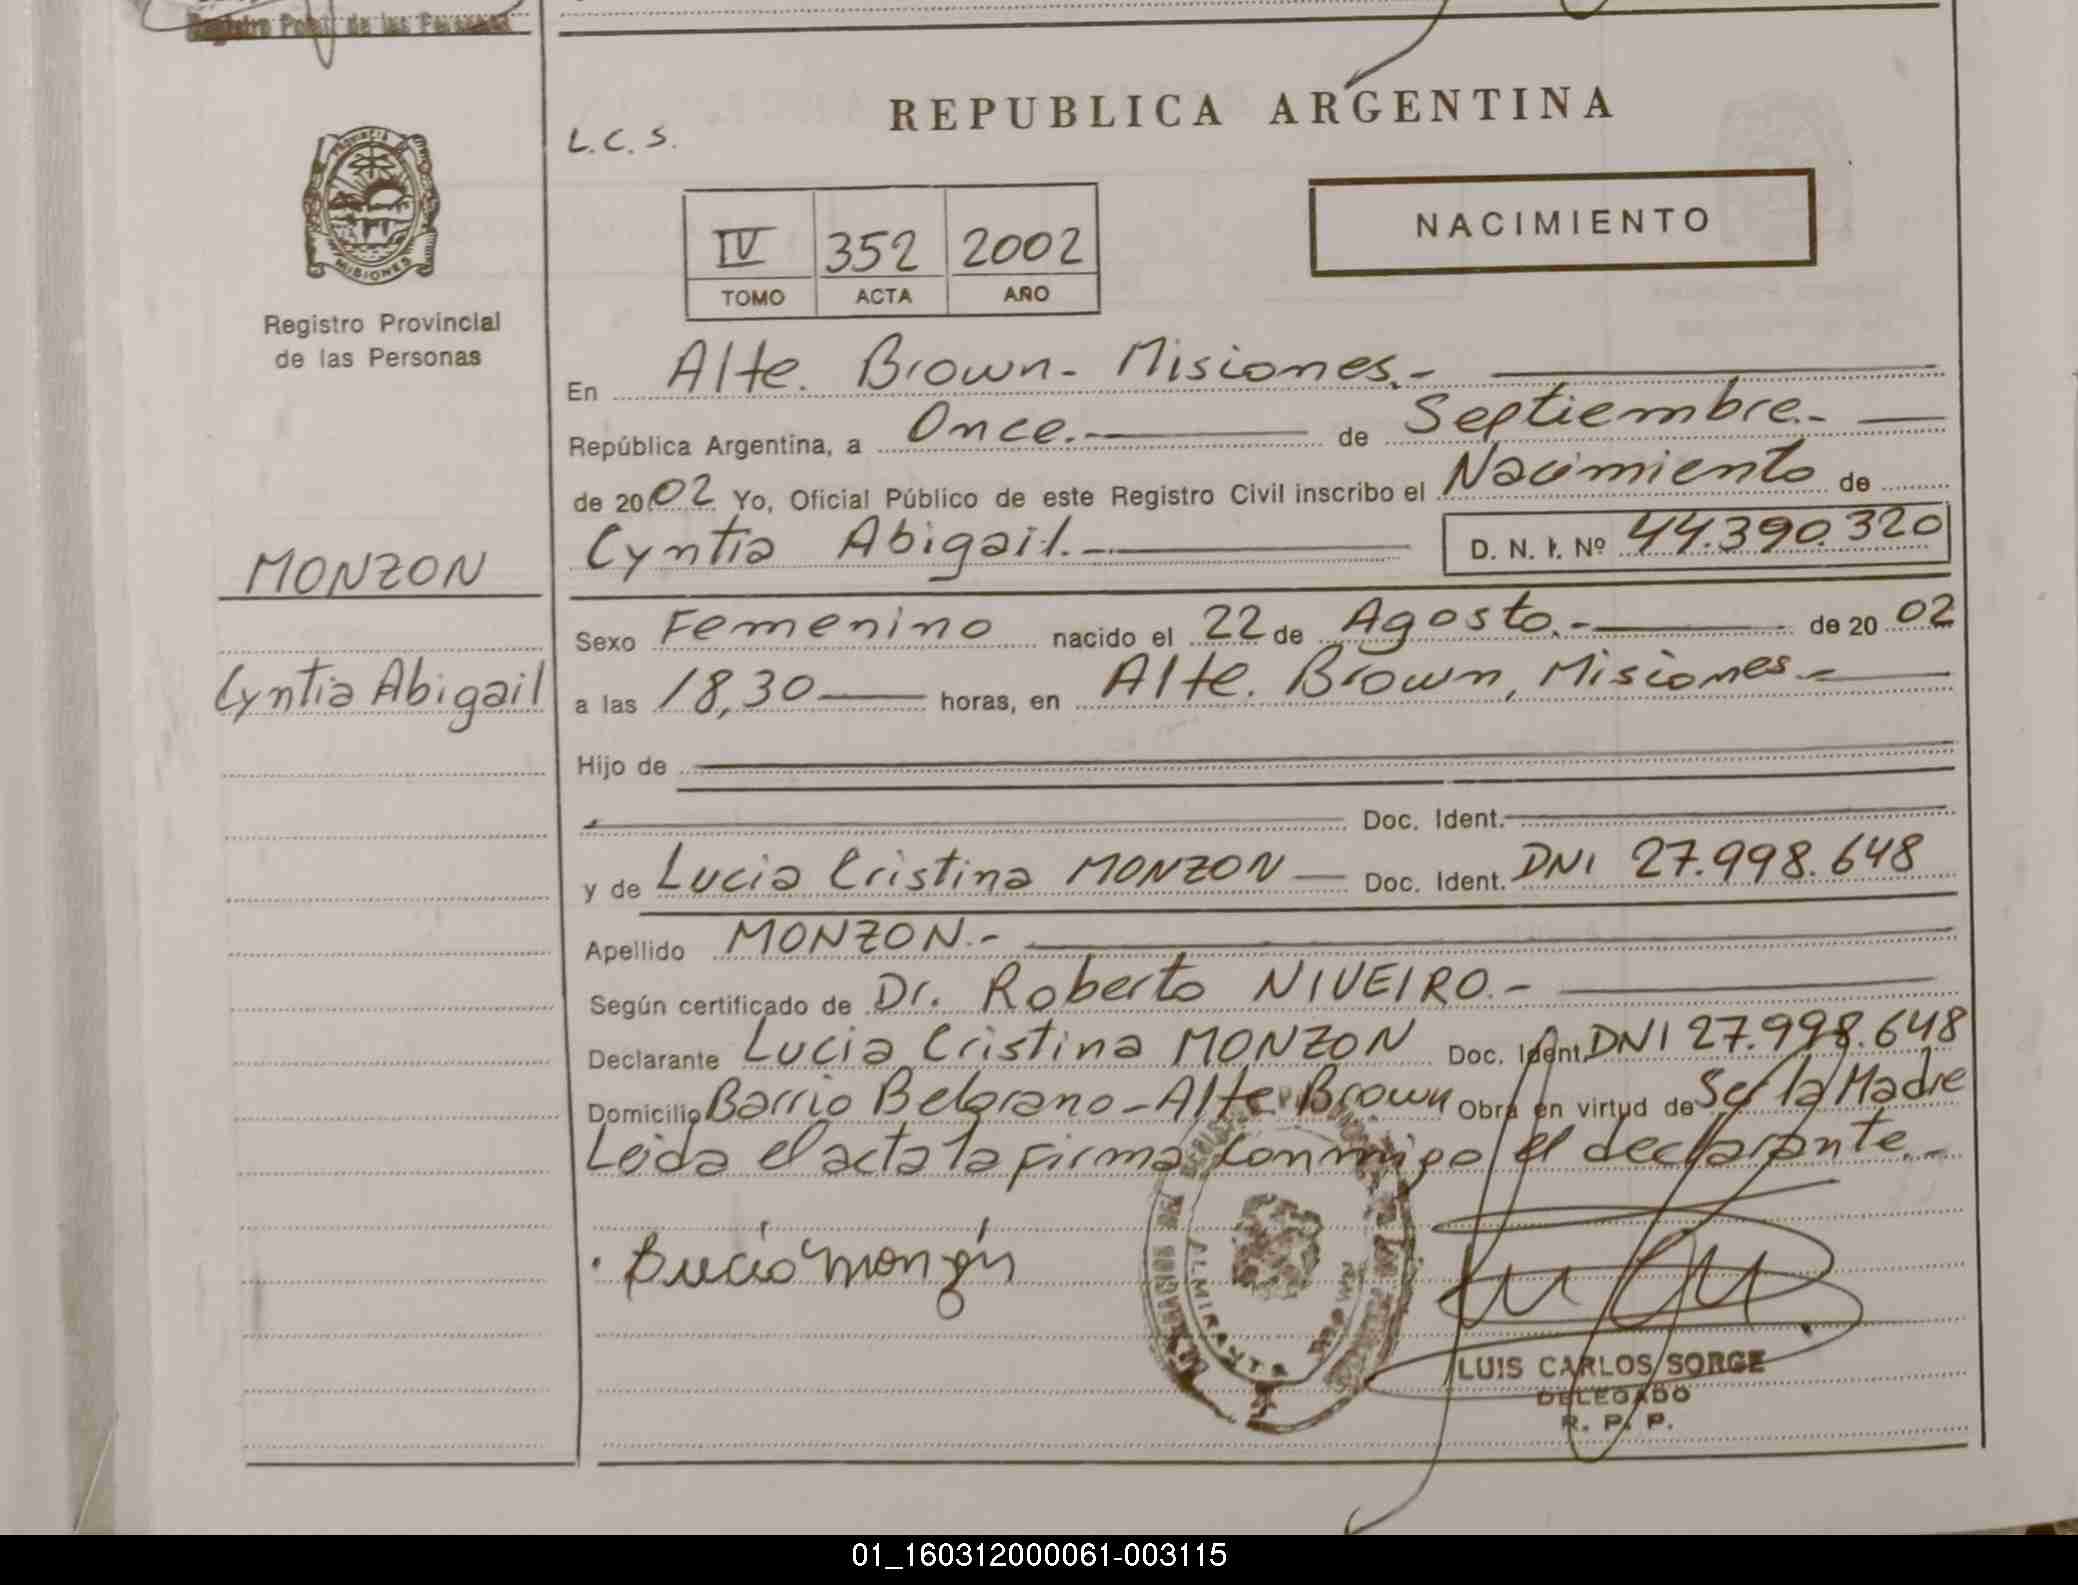 REPUBLICA ARGENTINA
L.C.S.
NACIMIENTO
IV 352 2002
TOMO ACTA AÑO
PROVINCIA
MISIONES
Registro Provincial
de las Personas
En Alte. Brown - Misiones.-
República Argentina, a Once.- de Septiembre.-
de 2002 Yo, Oficial Público de este Registro Civil inscribo el Nacimiento de
Cyntia Abigail.- D. N. I. Nº 44.390.320
MONZON
Cyntia Abigail
Sexo Femenino nacido el 22 de Agosto.- de 2002
a las 18,30 horas, en Alte. Brown, Misiones.-
Hijo de
Doc. Ident.
y de Lucia Cristina MONZON Doc. Ident. DNI 27.998.648
Apellido MONZON.-
Según certificado de Dr. Roberto NIVEIRO.-
Declarante Lucia Cristina MONZON Doc. Ident. DNI 27.998.648
Domicilio Barrio Belgrano - Alte Brown Obra en virtud de Ser la Madre
Leida el acta la firma conmigo el declarante.-
Lucia monzón
ALMIRANTE
LUIS CARLOS SORGE
DELEGADO
R. P. P.
01_160312000061-003115